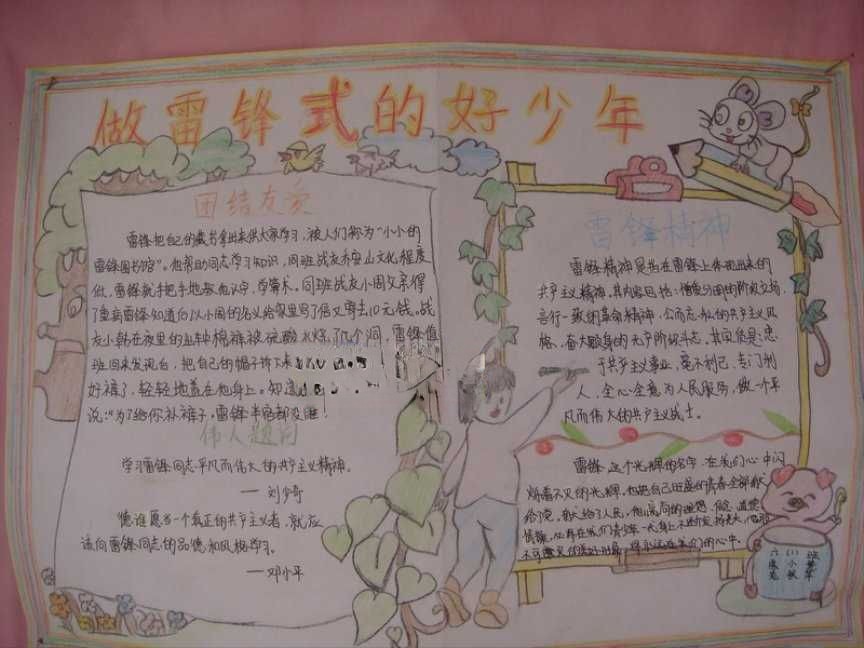 做雷锋式的好少年
团结友爱
雷锋把自己的藏书拿出来供大家学习,被人们称为“小小的
雷锋图书馆”。他帮助同志学习知识,同班战友乔安山文化程度
低,雷锋就手把手地教他认字,学算术。同班战友小周父亲得
了重病雷锋知道后以小周的名义给家里写了信又寄去10元钱。战
友小韩在夜里出车棉裤被硫酸水烧了几个洞,雷锋值
班回来发现后,把自己的帽子拆下来
好裤子,轻轻地盖在他身上。
说:“为了给你补裤子,雷锋半宿都没睡!
伟人题词
学习雷锋同志平凡而伟大的共产主义精神。
——刘少奇
谁愿当一个真正的共产主义者,就应
该向雷锋同志的品德和风格学习。
——邓小平
雷锋精神
雷锋精神是指在雷锋上体现出来的
共产主义精神,其内容包括:憎爱分明的阶级立场,
言行一致的革命精神,公而忘私的共产主义风
格,奋大顾身的无产阶级斗志,其实质是:忠
于共产主义事业,毫不利己,专门利
人,全心全意为人民服务,做一个平
凡而伟大的共产主义战士。
雷锋,这个光辉的名字,在我们心中闪
烁着不灭的光辉。他把自己旺盛的青春全部献
给了党,献给了人民,他崇高的理想、信念、道德
情操,
永远在我们的心中。
六(1)班